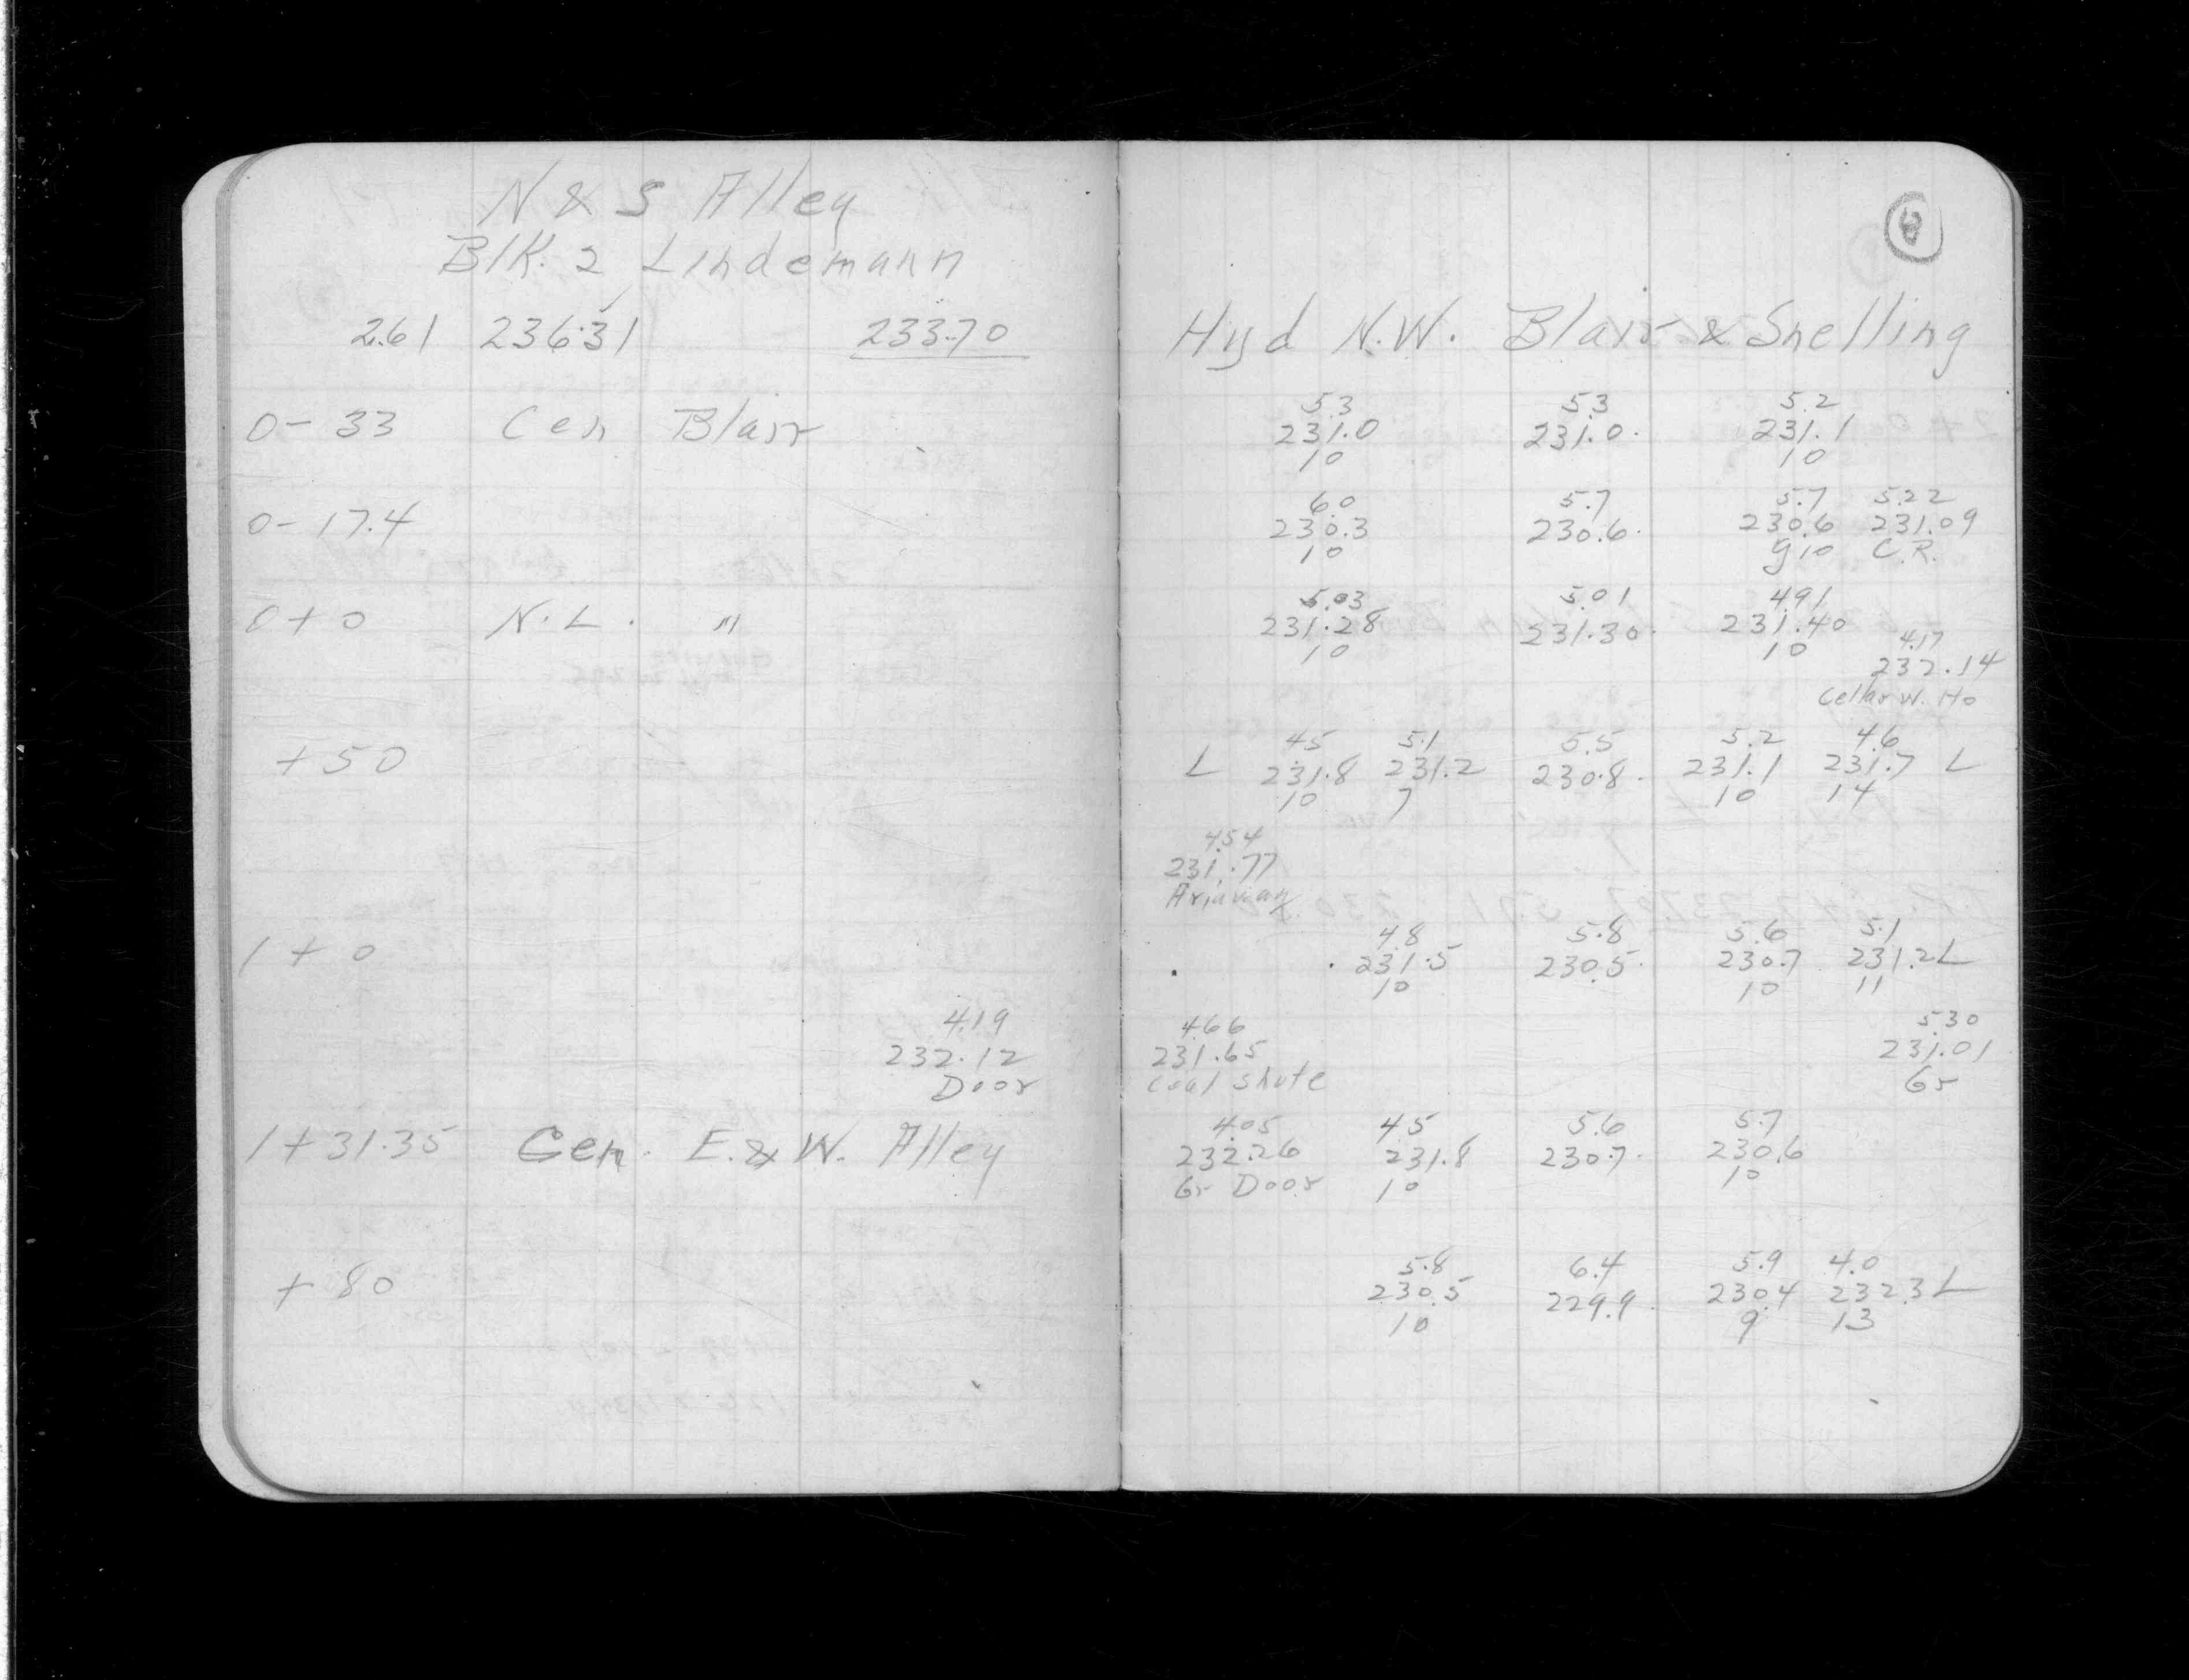 N & S Alley
Blk. 2 Lindemann
2.61 236.31 233.70
0-33 Cen Blair
0-17.4
0+0 N.L. "
+50
1+0
4.19
232.12
Door
1+31.35 Cen. E. & W. Alley
+80
Hyd N.W. Blair & Snelling
5.3 5.3 5.2
231.0 231.0 231.1
10 10
6.0 5.7 5.7 5.22
230.3 230.6 230.6 231.09
10 g10 C.R.
5.03 5.01 4.91
231.28 231.30 231.40
10 10
4.17
232.14
Cellar W. Ho
4.5 5.1 5.5 5.2 4.6
L 231.8 231.2 230.8 231.1 231.7 L
10 7 10 14
4.54
231.77
4.8 5.8 5.6 5.1
231.5 230.5 230.7 231.2 L
10 10 11
4.66 5.30
231.65 231.01
Coal Shute Gr
4.05 4.5 5.6 5.7
232.26 231.8 230.7 230.6
Gr Door 10 10
5.8 6.4 5.9 4.0
230.5 229.9 230.4 232.3 L
10 9 13